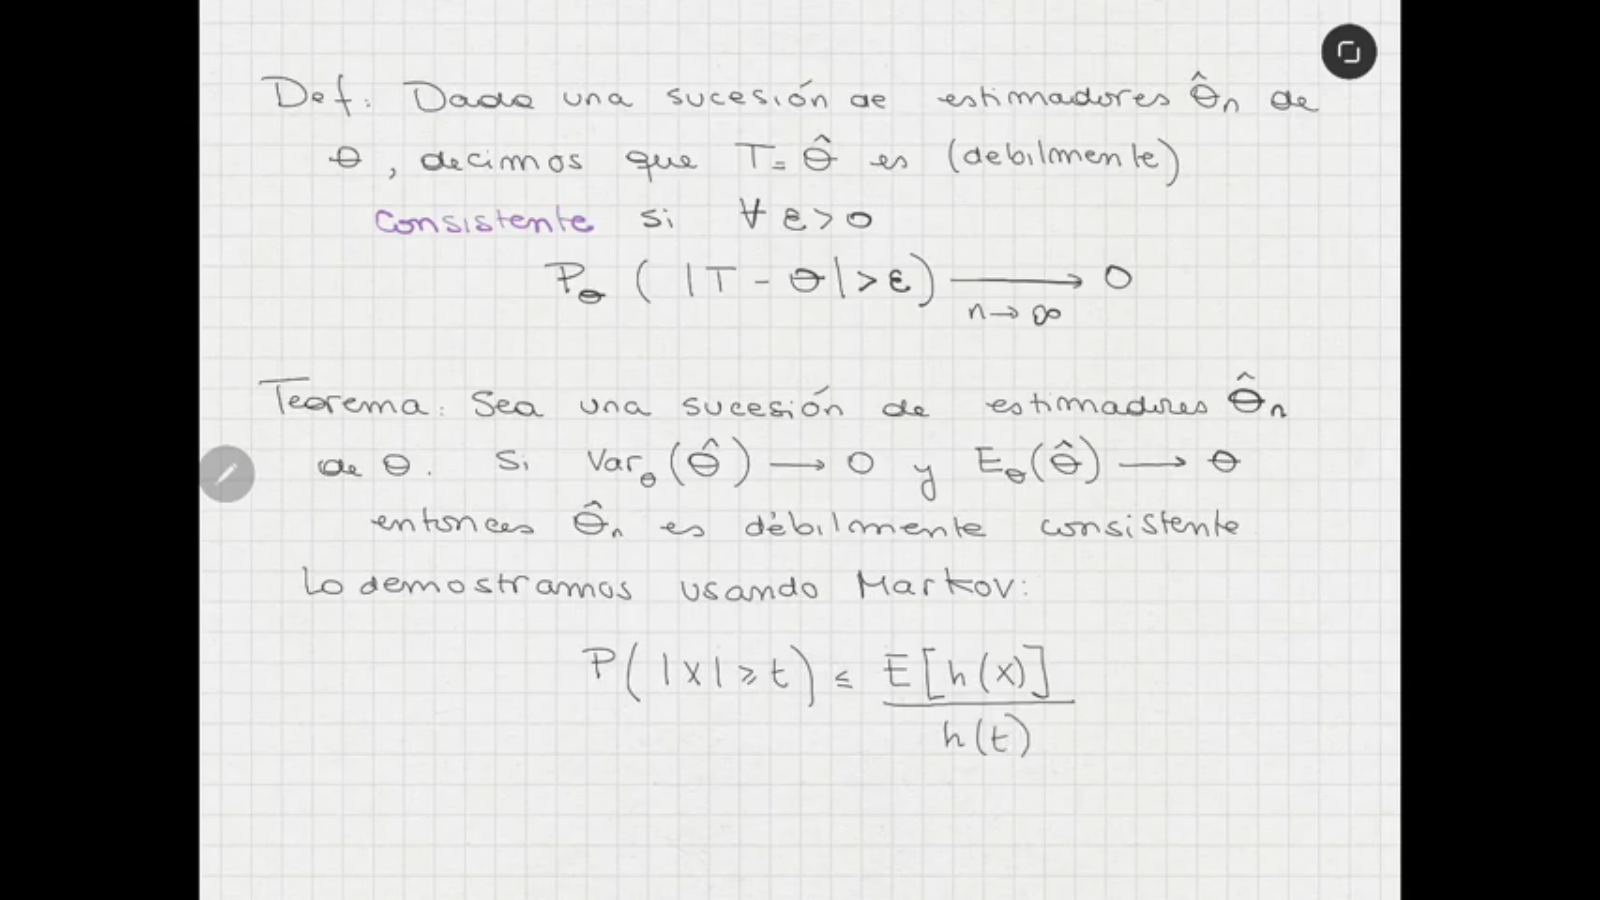 Def: Dada una sucesión de estimadores θ̂n de
θ, decimos que T = θ̂ es (debilmente)
consistente si ∀ ε > 0
Pθ ( |T - θ| > ε) → 0
n → ∞
Teorema: Sea una sucesión de estimadores θ̂n
de θ. Si Varθ(θ̂) → 0 y Eθ(θ̂) → θ
entonces θ̂n es débilmente consistente
Lo demostramos usando Markov:
P( |X| ≥ t) ≤ E[h(x)]
h(t)